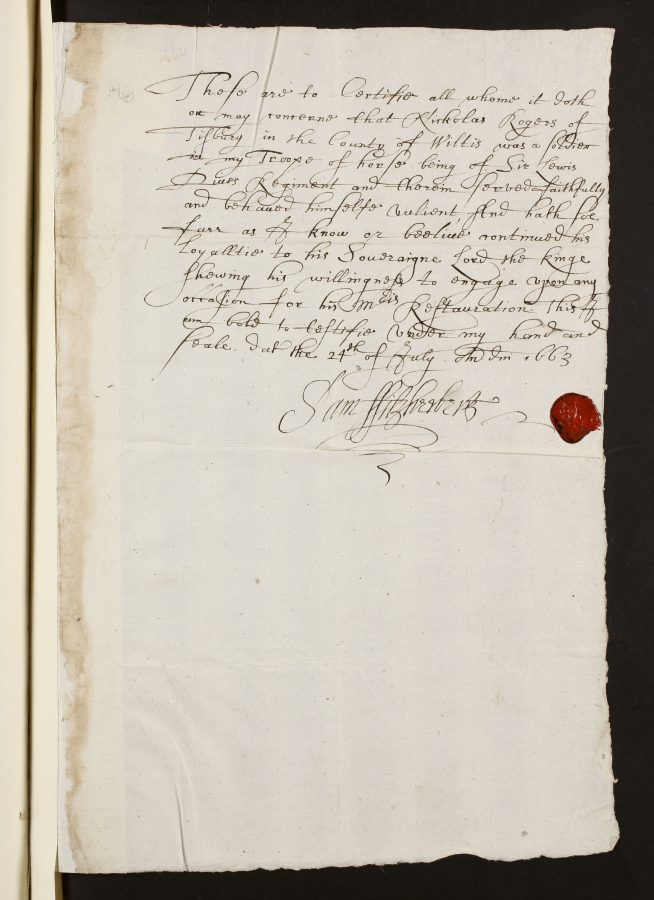 These are to Certifie all whome it doth
or may concerne that Nickolas Rogers of
Tisbury in the County of Willts was a soldier
in my Troope of horse being of Sir Lewis
Dives Regiment and therein served faithfully
and behaved himselfe valient And hath soe
farr as I know or beelive continued his
Loyalltie to his Soveraigne Lord the Kinge
shewing his willingness to engage upon any
occasion for his Maties Restauration This I
am bold to testifie Under my hand and
seale. dat the 24th of July 1663
Sam ffitzherbert